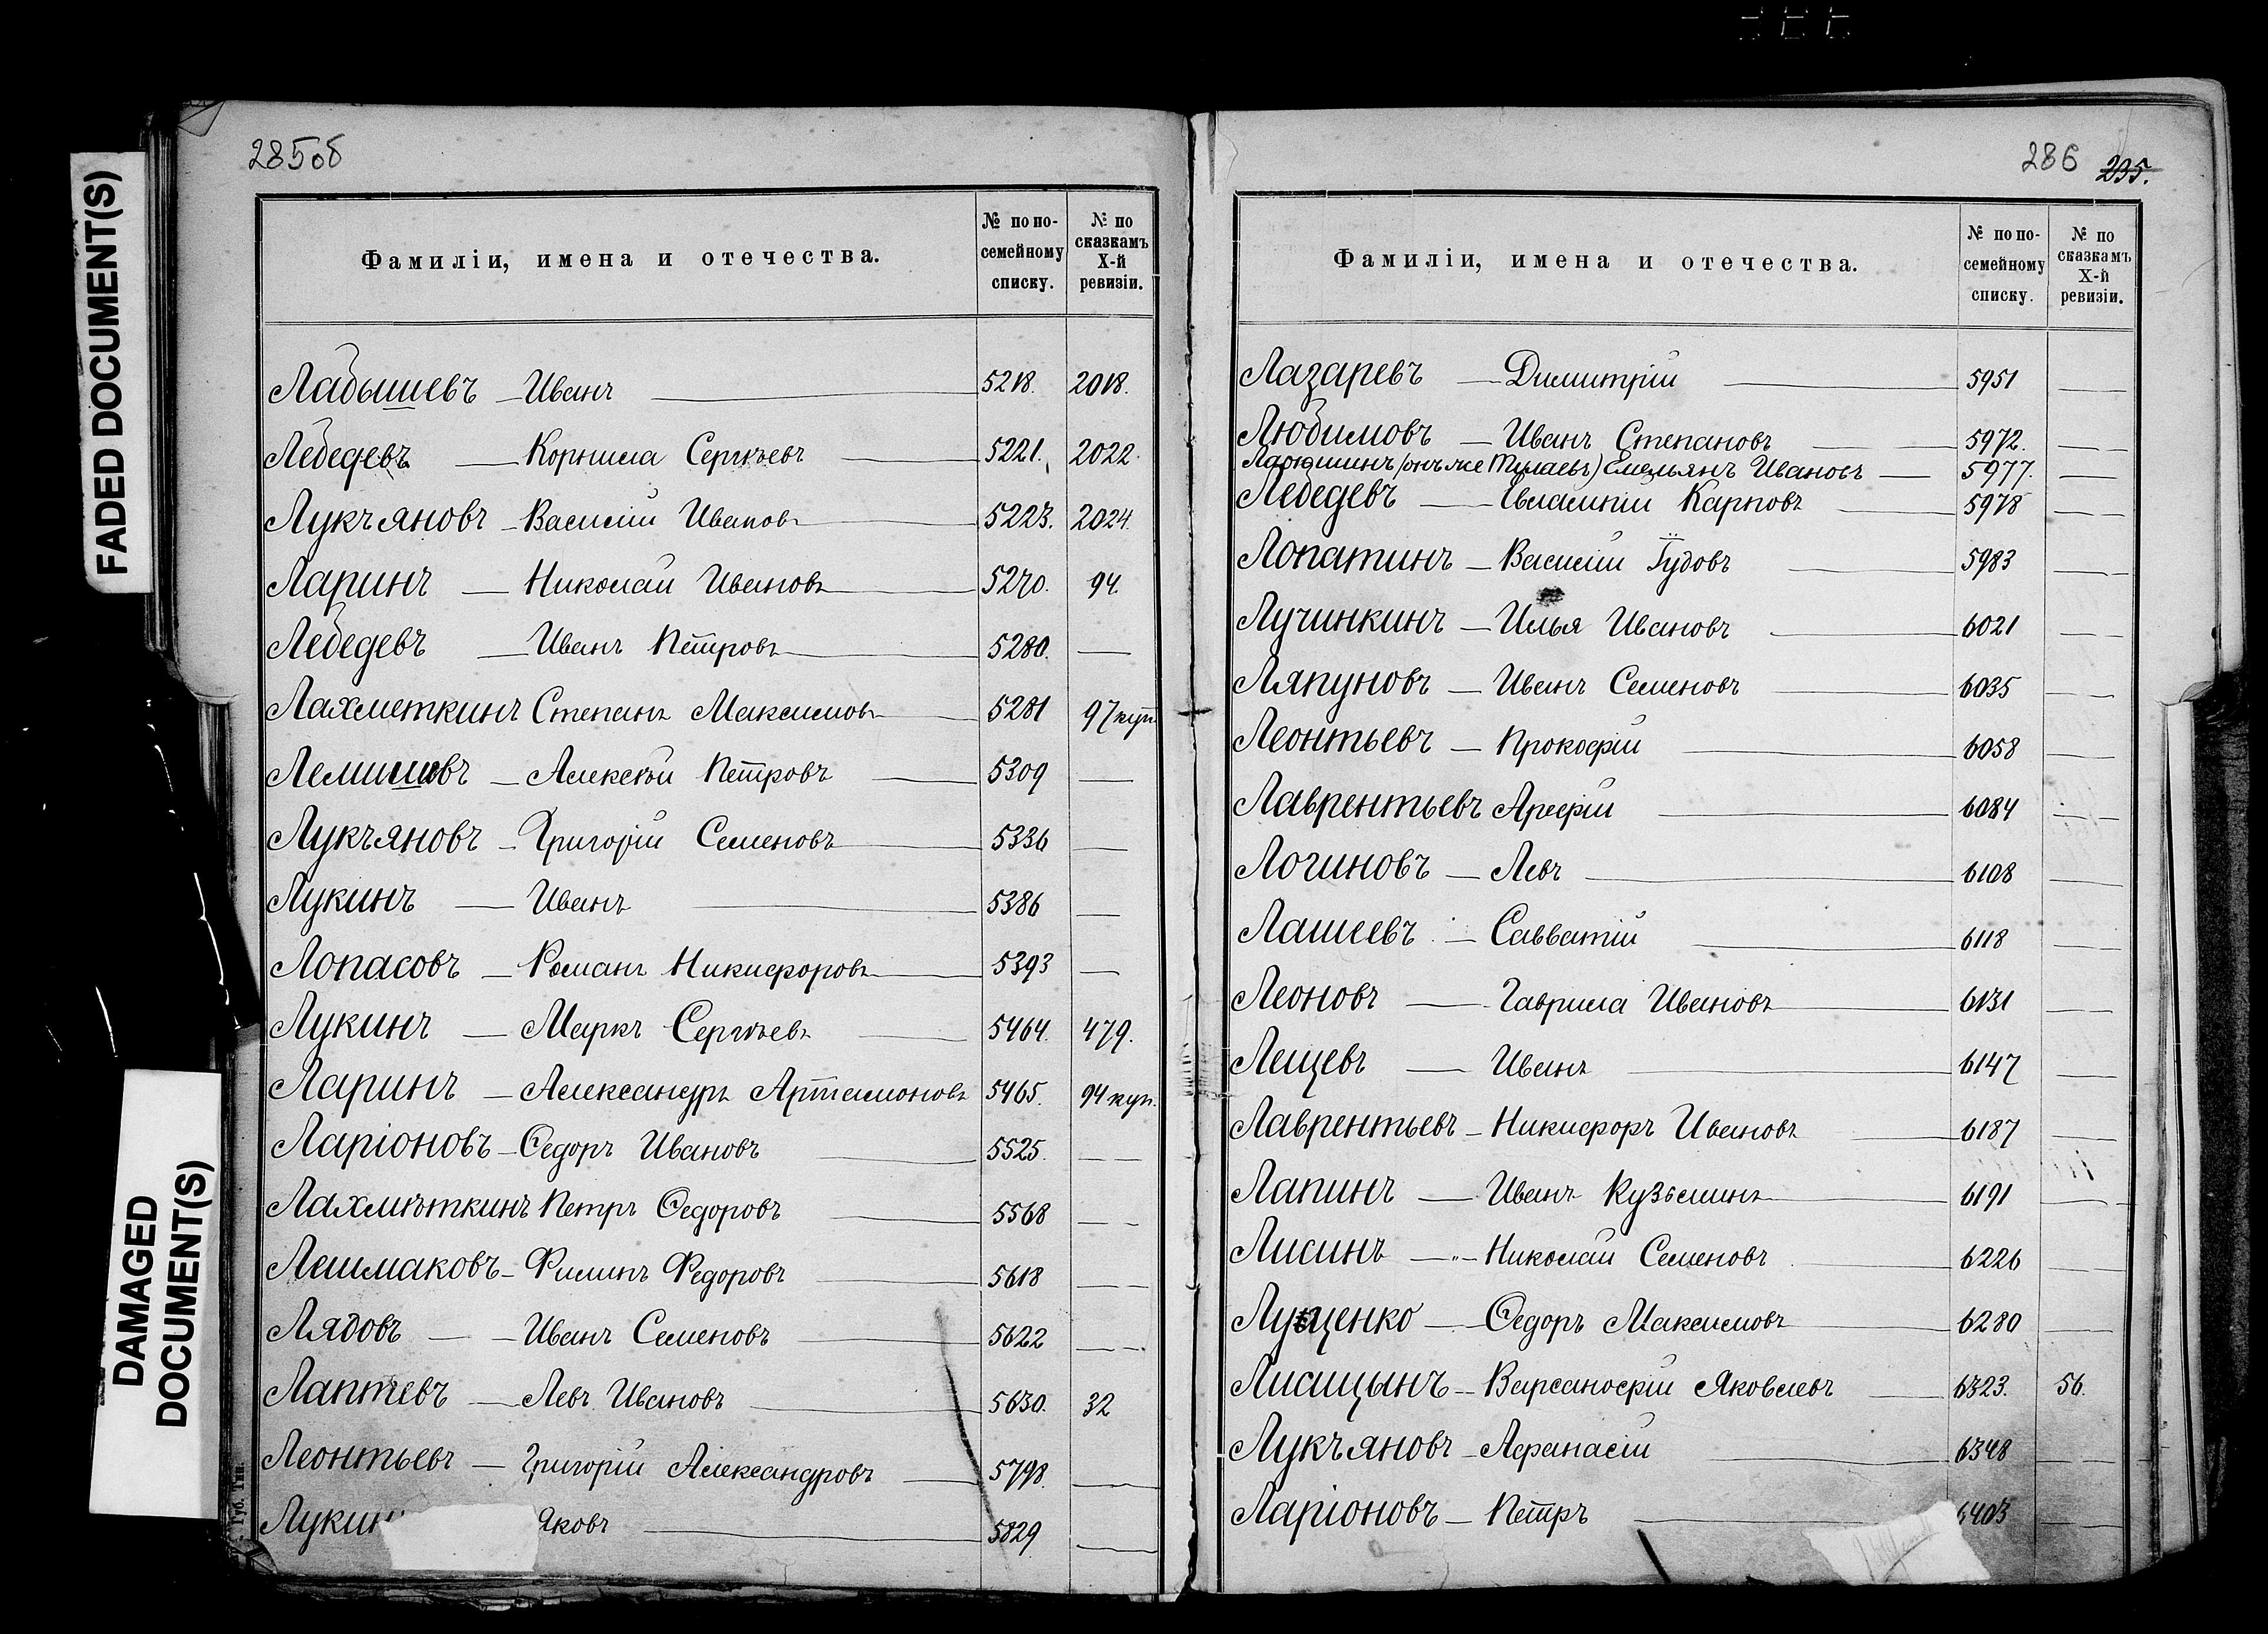 FADED DOCUMENT(S)
DAMAGED
DOCUMENT(S)
285об
Фамиліи, имена и отечества. № по по-семейному списку. № по сказкамъ X-й ревизіи.
Лабышевъ — Иванъ — 5218. 2018.
Лебедевъ — Корнила Сергѣевъ — 5221. 2022.
Лукъяновъ — Василій Ивановъ — 5223. 2024.
Ларинъ — Николай Ивановъ — 5270. 94.
Лебедевъ — Иванъ Петровъ — 5280. —
Лахметкинъ Степанъ Максимовъ — 5281 97 куп.
Лемишевъ — Алексѣй Петровъ — 5309 —
Лукъяновъ — Григорій Семеновъ — 5336 —
Лукинъ — Иванъ — 5386 —
Лопасовъ — Романъ Никифоровъ — 5393 —
Лукинъ — Маркъ Сергѣевъ — 5464. 479.
Ларинъ — Александръ Артамоновъ 5465. 94 куп.
Ларіоновъ — Ѳедоръ Ивановъ — 5525. — —
Лахмѣткинъ Петръ Ѳедоровъ — 5568 — —
Лешмаковъ — Филипъ Федоровъ — 5618 — —
Лядовъ — — Иванъ Семеновъ — 5622 — —
Лаптевъ — Левъ Ивановъ — 5630. 32
Леонтьевъ — Григорій Александровъ — 5798. —
Лукин Яковъ — 5829 —
Губ. Тип.
286 235.
Фамиліи, имена и отечества. № по по-семейному списку. № по сказкамъ X-й ревизіи.
Лазаревъ — Димитрій — 5951 —
Любимовъ — Иванъ Степановъ — 5972. —
Ларюшинъ (онъ же Тулаевъ) Емельянъ Ивановъ — 5977. —
Лебедевъ — Евлампій Карповъ — 5978 — —
Лопатинъ — Василій Іудовъ — 5983 — —
Лучинкинъ — Илья Ивановъ — 6021 — —
Ляпуновъ — Иванъ Семеновъ — 6035 — —
Леонтьевъ — Прокофій — 6058 —
Лаврентьевъ Арефій — 6084 — —
Логиновъ — Левъ — 6108 —
Лашеевъ — Савватій — 6118 —
Леоновъ — Гаврила Ивановъ — 6131 — —
Лещевъ — Иванъ — 6147 —
Лаврентьевъ — Никифоръ Ивановъ — 6187 —
Лапинъ — Иванъ Кузьминъ — 6191 — —
Лисинъ —"— Николай Семеновъ — 6226 —
Лущенко — Ѳедоръ Максимовъ — 6280 —
Лисицынъ — Варсанофій Яковлевъ — 6323. 56.
Лукъяновъ — Афанасій — 6348 — —
Ларіоновъ — Петръ — 6403 — —